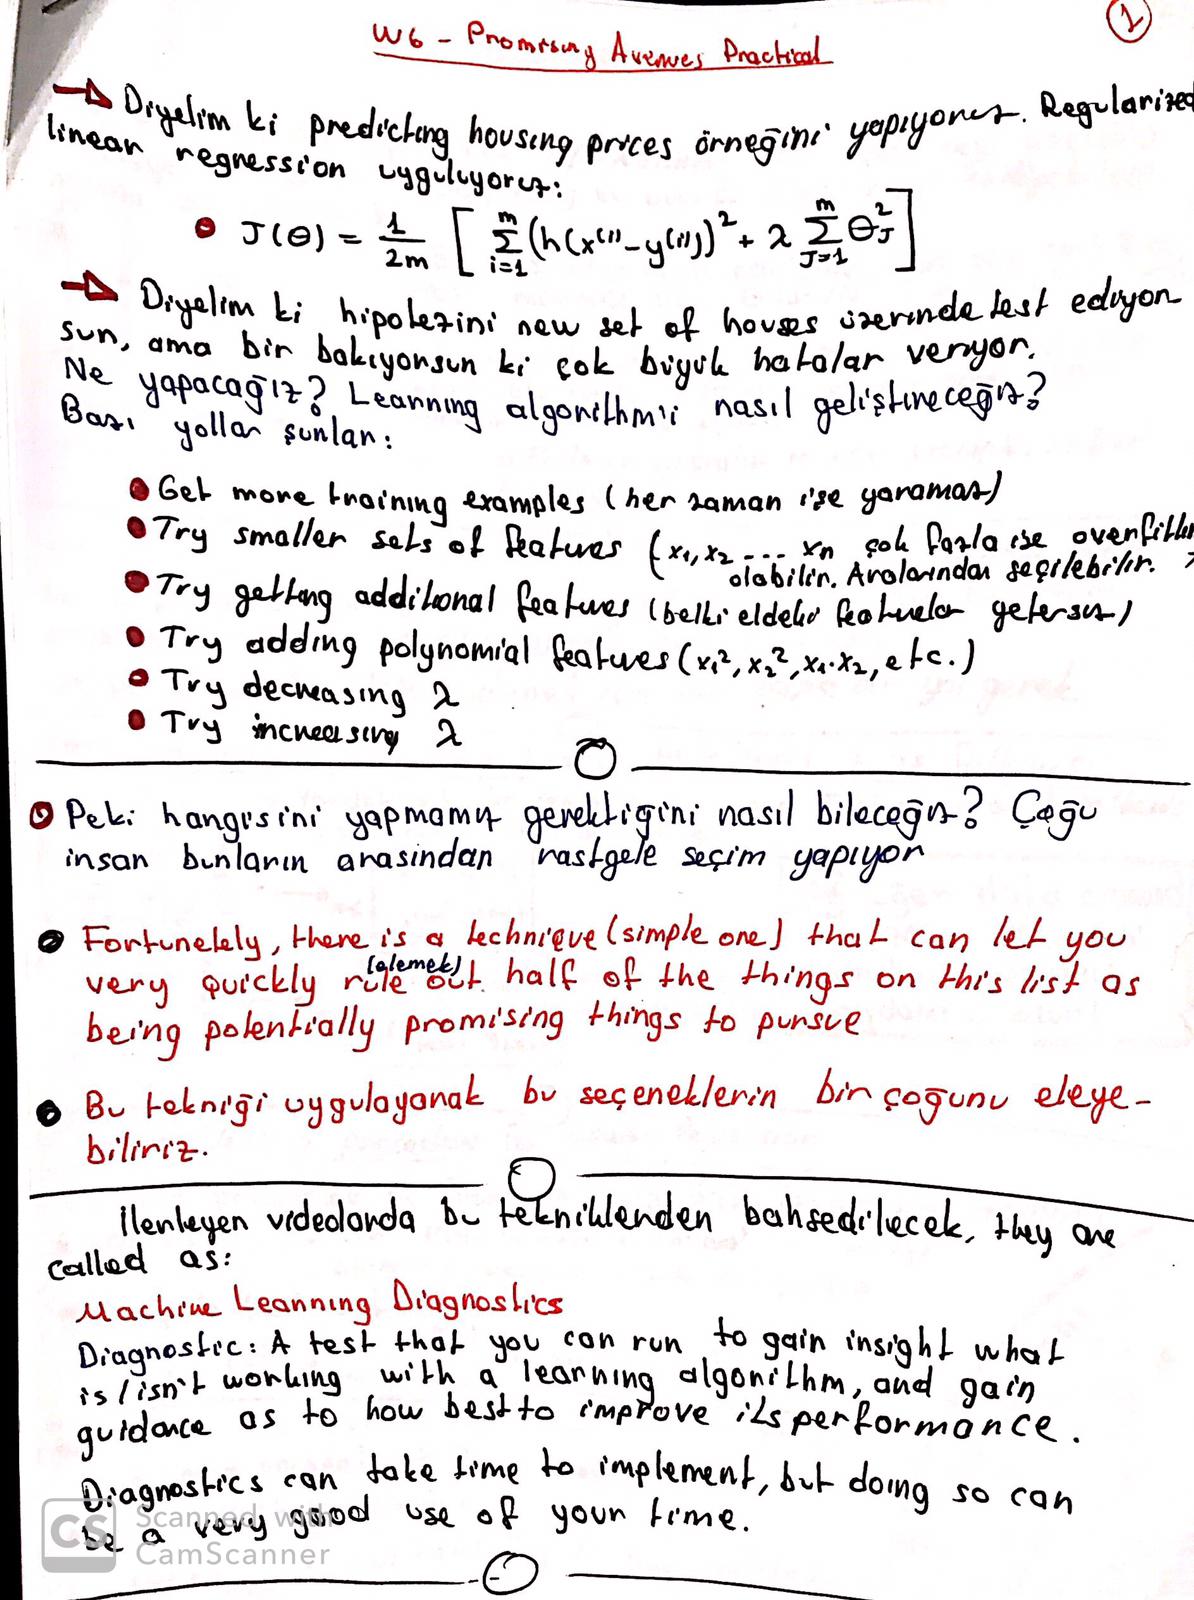 1
W6 - Promising Avenues Practical
Diyelim ki predicting housing prices örneğini yapıyoruz. Regularized
linear regression uyguluyoruz:
J(θ) = 1/2m [ m∑i=1 (h(x⁽ⁱ⁾-y⁽ⁱ⁾))² + λ m∑J=1 θJ² ]
Diyelim ki hipotezini new set of houses üzerinde test ediyor
sun, ama bir bakıyorsun ki çok büyük hatalar veriyor.
Ne yapacağız? Learning algorithm'i nasıl geliştireceğiz?
Bazı yollar şunlar:
Get more training examples (her zaman işe yaramaz)
Try smaller sets of features (x₁, x₂ ... xn çok fazla ise overfittin
olabilir. Aralarından seçilebilir. )
Try getting additional features (belki eldeki featurelar yetersiz)
Try adding polynomial features (x₁², x₂², x₁.x₂, etc.)
Try decreasing λ
Try increasing λ
Peki hangisini yapmamız gerektiğini nasıl bileceğiz? Çoğu
insan bunların arasından rastgele seçim yapıyor
Fortunetely, there is a technique (simple one) that can let you
(elemek)
very quickly rule out half of the things on this list as
being potentially promising things to pursue
Bu tekniği uygulayarak bu seçeneklerin bir çoğunu eleye-
biliriz.
İlerleyen videolarda bu tekniklerden bahsedilecek, they are
called as:
Machine Learning Diagnostics
Diagnostic: A test that you can run to gain insight what
is/isn't working with a learning algorithm, and gain
guidance as to how best to improve its performance.
Diagnostics can take time to implement, but doing so can
be a very good use of your time.
CS Scanned with
CamScanner